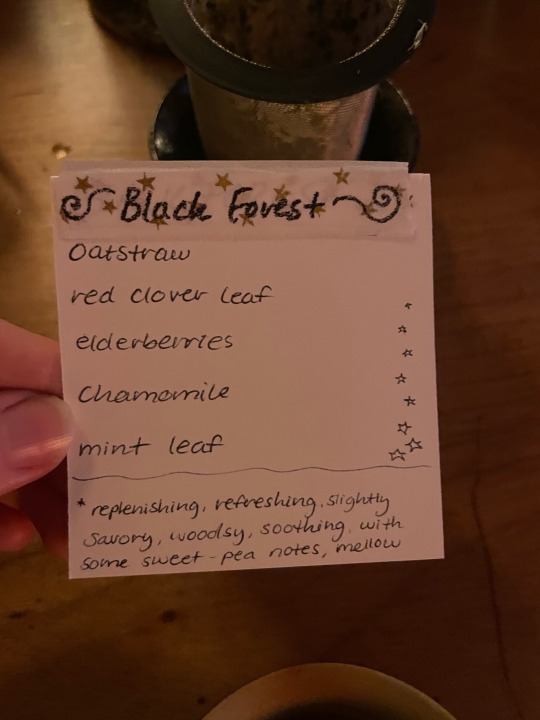 Black Forest
Oatstraw
red clover leaf
elderberries
Chamomile
mint leaf
* replenishing, refreshing, slightly
savory, woodsy, soothing, with
some sweet-pea notes, mellow